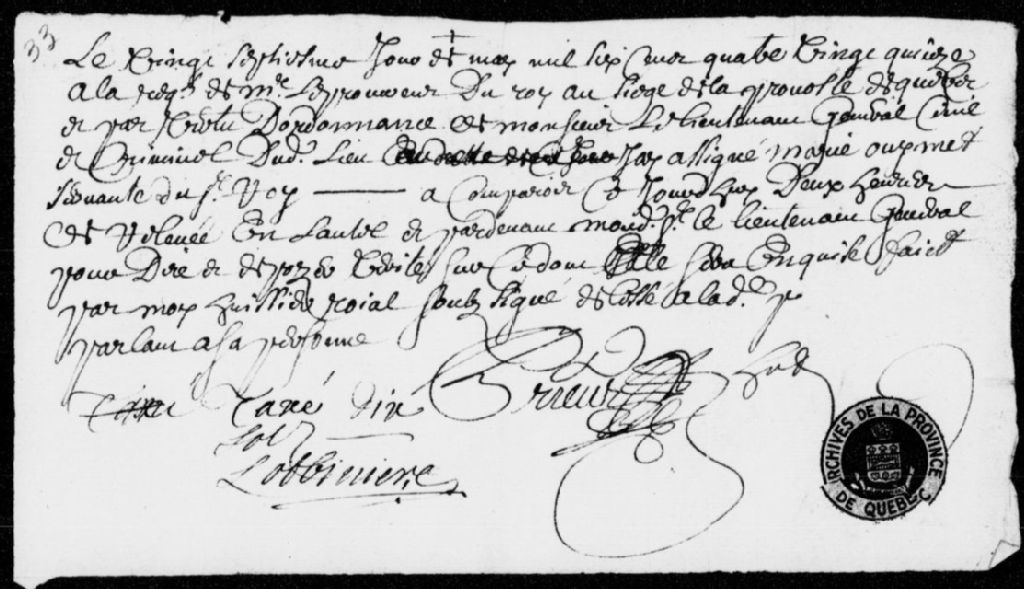 33
Le Vingt Septiesme Jour de may mil six cent quatre Vingt quinze
a la req.te de m.e Le procureur Du roy au siege de la prevosté de quebec
et par Vertu D'ordonnance de monsieur Le lieutenant General Civil
et Criminel Dud. Lieu Jay assigné marie ouymet
servante du s.r Roy a Comparoir Ce Jourdhuy Deux heures
de relevée En Lautel et pardevant mond. s.r le lieutenant General
pour Dire et depozer Verité sur Ce dont Elle sera Enquise faict
par moy huissier roial soubz signé delessé a lad.
parlant a sa personne
Prieur
Taxé dix
Solz
Lotbiniere
ARCHIVES DE LA PROVINCE DE QUEBEC